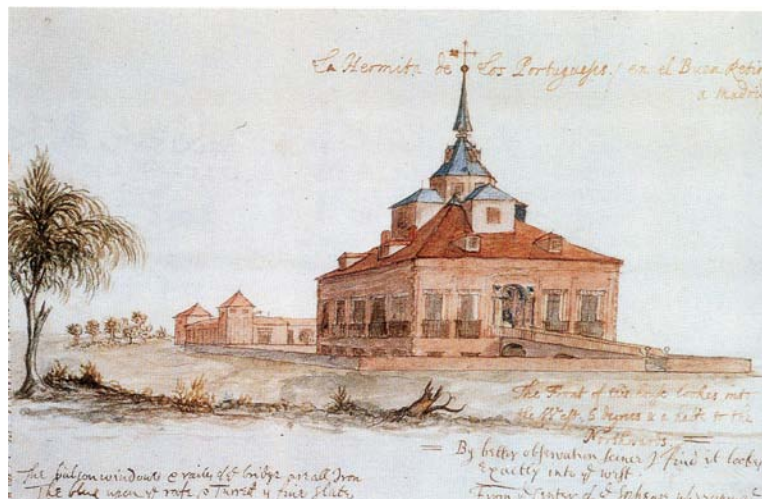 La Hermita de Los Portugueses / en el Buen Retir
a Madrid
The Front of this house lookes into
the West, & a halfe to the
Northwards.
= By better observation since I find it lookes
Exactly into ye west.
The balcon windows & railes of ye bridge are all Iron
The blue upon ye roofe, & Turret is fine Slate
From ye Center of ye